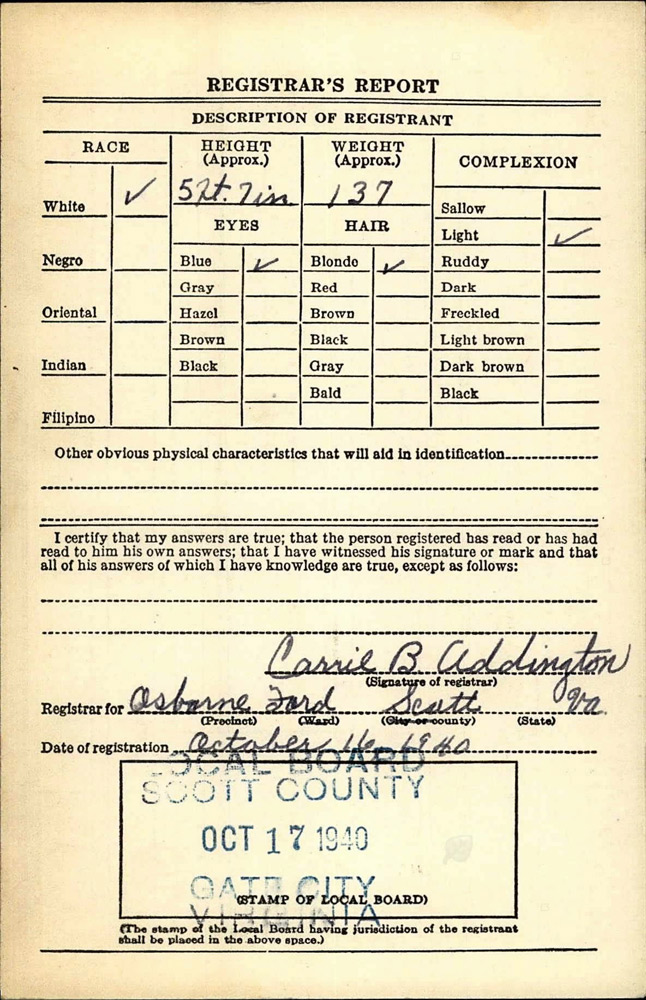 REGISTRAR'S REPORT
DESCRIPTION OF REGISTRANT
RACE
HEIGHT
(Approx.)
WEIGHT
(Approx.)
COMPLEXION
White ✓
5 ft. 7 in.
137
Sallow
EYES
HAIR
Light ✓
Negro
Blue ✓
Blonde ✓
Ruddy
Gray
Red
Dark
Oriental
Hazel
Brown
Freckled
Brown
Black
Light brown
Indian
Black
Gray
Dark brown
Bald
Black
Filipino
Other obvious physical characteristics that will aid in identification
I certify that my answers are true; that the person registered has read or has had
read to him his own answers; that I have witnessed his signature or mark and that
all of his answers of which I have knowledge are true, except as follows:
Carrie B. Addington
(Signature of registrar)
Registrar for Osborne Ford Scott Va.
(Precinct) (Ward) (City or county) (State)
Date of registration October 16, 1940
LOCAL BOARD
SCOTT COUNTY
OCT 17 1940
GATE CITY
(STAMP OF LOCAL BOARD)
VIRGINIA
(The stamp of the Local Board having jurisdiction of the registrant
shall be placed in the above space.)